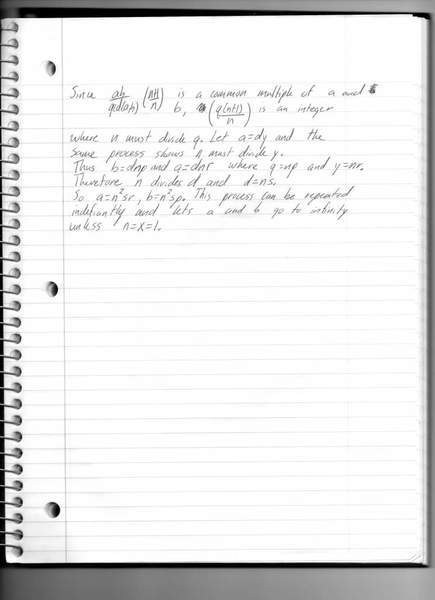 Since ab/gcd(a,b) (n+1/n) is a common multiple of a and
b, (q(n+1)/n) is an integer
where n must divide q. Let a=dy and the
same process shows n must divide y.
Thus b=dnp and a=dnr where q=np and y=nr.
Therefore n divides d and d=ns.
So a=n²sr, b=n²sp. This process can be repeated
indefiantly and lets a and b go to infinity
unless n=x=1.